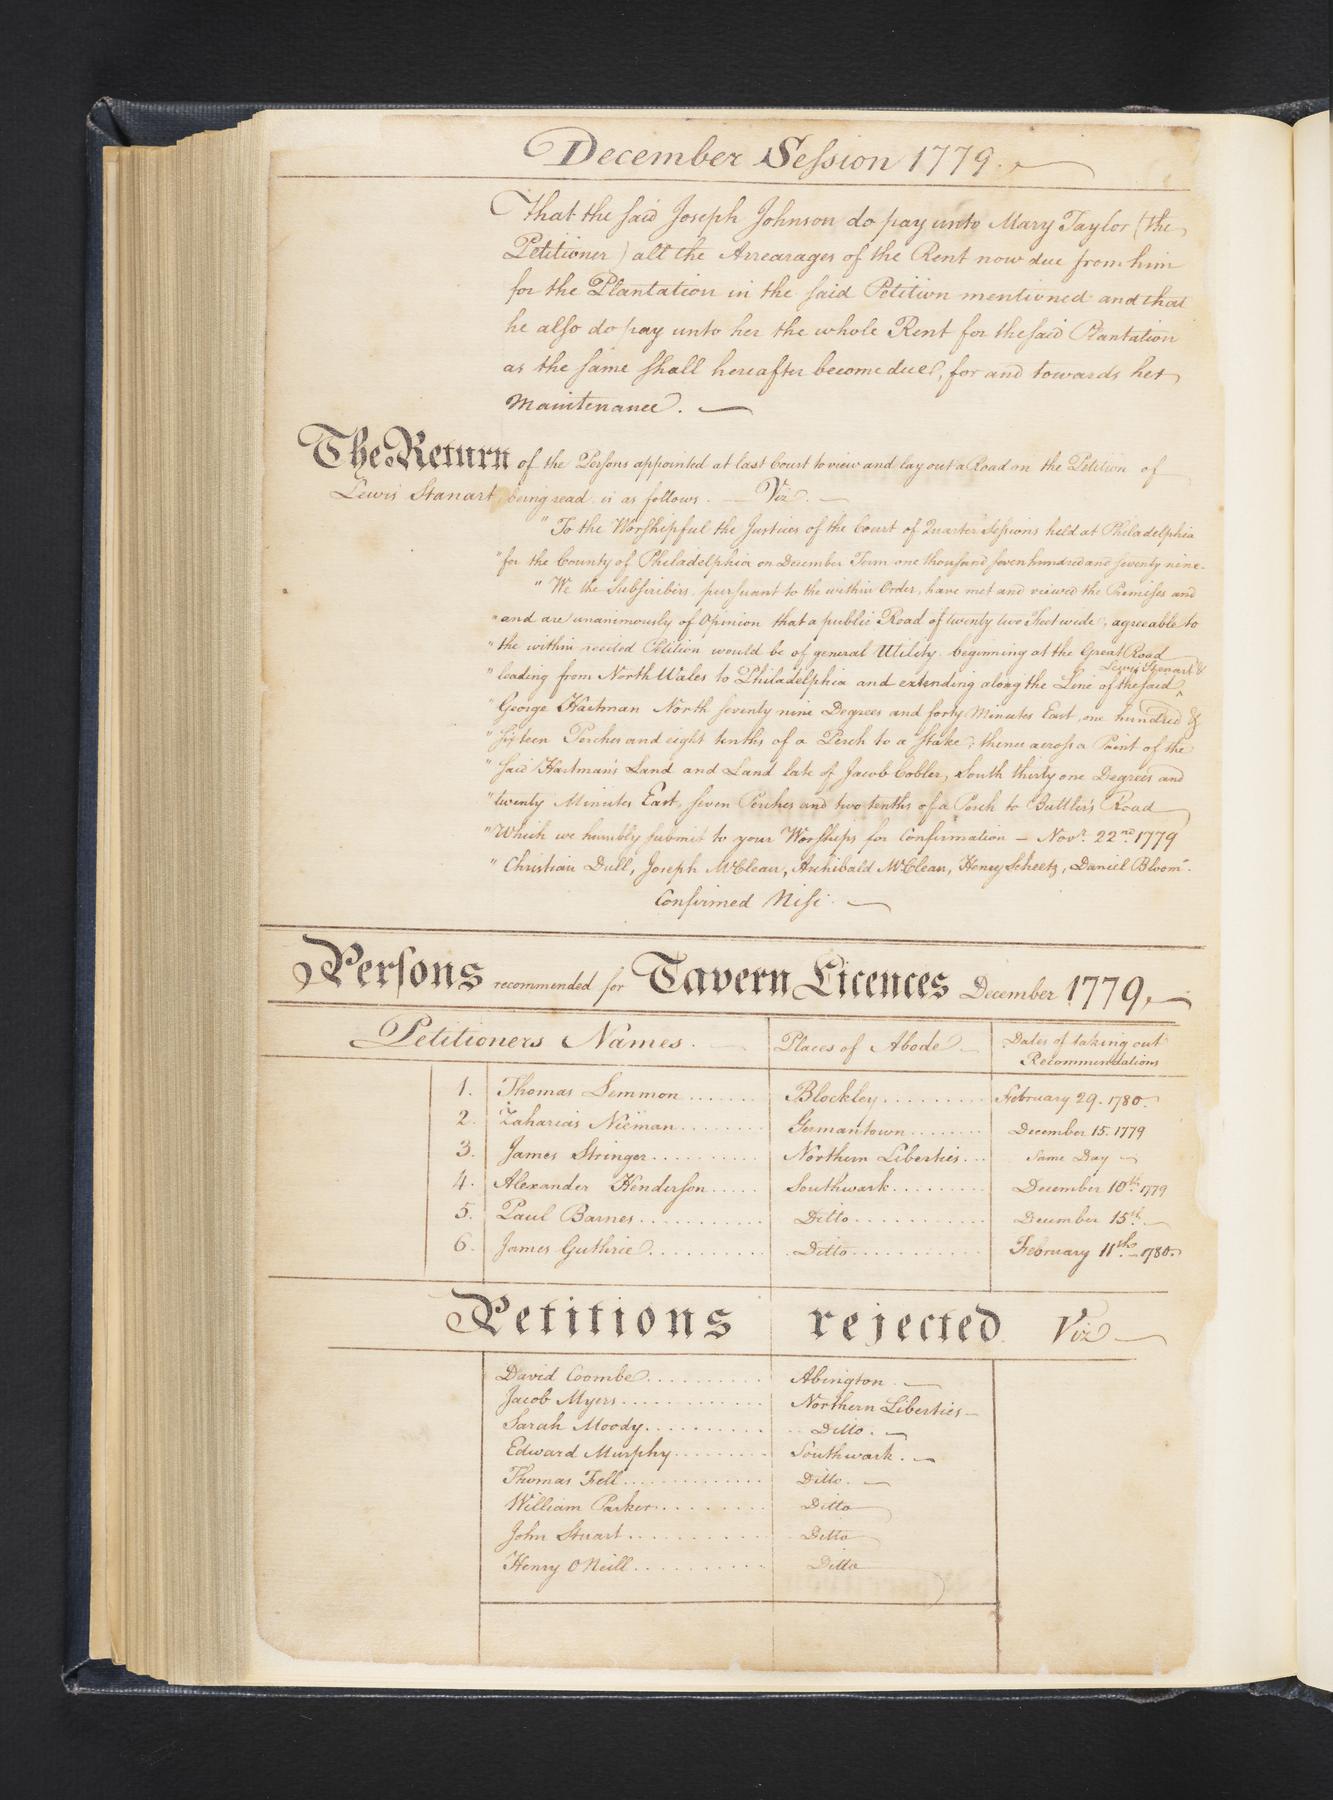 December Session 1779.
That the said Joseph Johnson do pay unto Mary Taylor (the
Petitioner) all the Arrearages of the Rent now due from him
for the Plantation in the said Petition mentioned and that
he also do pay unto her the whole Rent for the said Plantation
as the same shall hereafter become due, for and towards her
Maintenance.
The Return of the Persons appointed at last Court to view and lay out a Road on the Petition of
Lewis Stanart being read is as follows. — Viz. —
" To the Worshipful the Justices of the Court of Quarter Sessions held at Philadelphia
" for the County of Philadelphia on December Term one thousand seven hundred and seventy nine.
" We the Subscribers, pursuant to the within Order, have met and viewed the Premises and
" and are unanimously of Opinion that a public Road of twenty two Feet wide, agreeable to
" the within recited Petition would be of general Utility, beginning at the Great Road
" leading from North Wales to Philadelphia and extending along the Line of the said ^ Lewis Stenart &
" George Hartman North seventy nine Degrees and forty Minutes East, one hundred &
" sixteen Perches and eight tenths of a Perch to a Stake; thence across a Point of the
" said Hartman's Land and Land late of Jacob Cobler, South thirty one Degrees and
" twenty Minutes East, seven Perches and two tenths of a Perch to Buttler's Road
" Which we humbly submit to your Worships for Confirmation — Novr. 22nd. 1779
" Christian Dull, Joseph McClean, Archibald McClean, Henry Scheetz, Daniel Bloom".
Confirmed Nisi. —
Persons recommended for Tavern Licences December 1779.
Petitioners Names. Places of Abode Dates of taking out Recommendations
1. Thomas Lemmon....... Blockley......... February 29. 1780.
2. Zaharias Nieman........ Germantown....... December 15. 1779
3. James Stringer.......... Northern Liberties... Same Day
4. Alexander Henderson..... Southwark......... December 10th. 1779
5. Paul Barnes........... Ditto........... December 15th.
6. James Guthrie.......... Ditto........... February 11th. 1780.
Petitions rejected Viz
David Coombe.......... Abington
Jacob Myers............ Northern Liberties
Sarah Moody.......... Ditto.
Edward Murphy........ Southwark.
Thomas Fell............ Ditto.
William Parker......... Ditto
John Stuart........... Ditto
Henry O Neill.......... Ditto